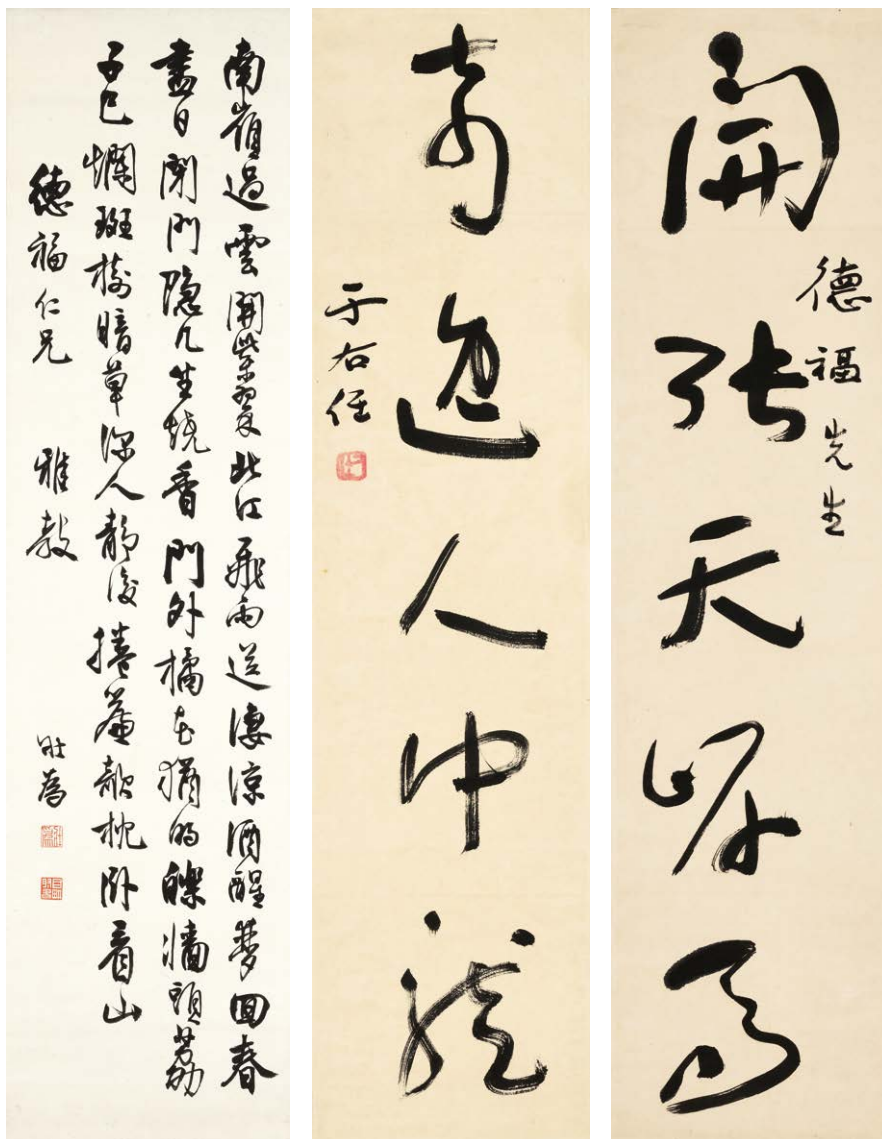 開張天岸馬
德福先生
奇逸人中龍
于右任
南嶺過雲開紫翠北江飛雨送凄涼酒醒夢回春
盡日閉門隱几坐燒香門外橘花猶的皪牆頭荔
子已爛斑樹暗草深人靜後捲簾欹枕臥看山
德福仁兄 雅教 壯為